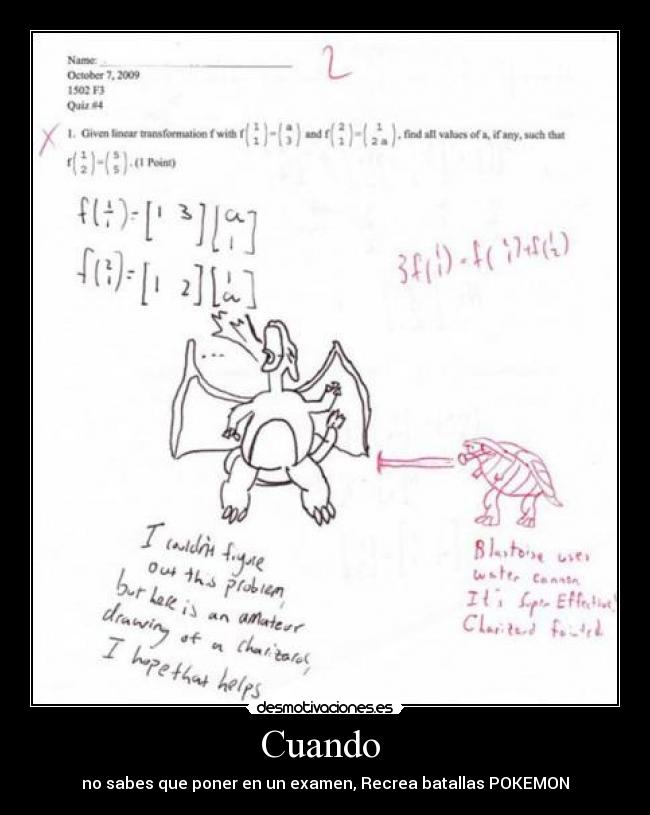 Name:
2
October 7, 2009
1502 F3
Quiz #4
X 1. Given linear transformation f with f(1 1)=(a 3) and f(2 1)=(1 2a), find all values of a, if any, such that
f(1 2)=(5 5). (1 Point)
f(1 1)=[1 3][a 1]
f(2 1)=[1 2][1 a]
3f(1 1)=f( 1)+f(1 2)
...
I couldn't figure
out this problem,
but here is an amateur
drawing of a charizard,
I hope that helps
Blastoise uses
water cannon
It's Super Effective!
Charizard fainted
desmotivaciones.es
Cuando
no sabes que poner en un examen, Recrea batallas POKEMON